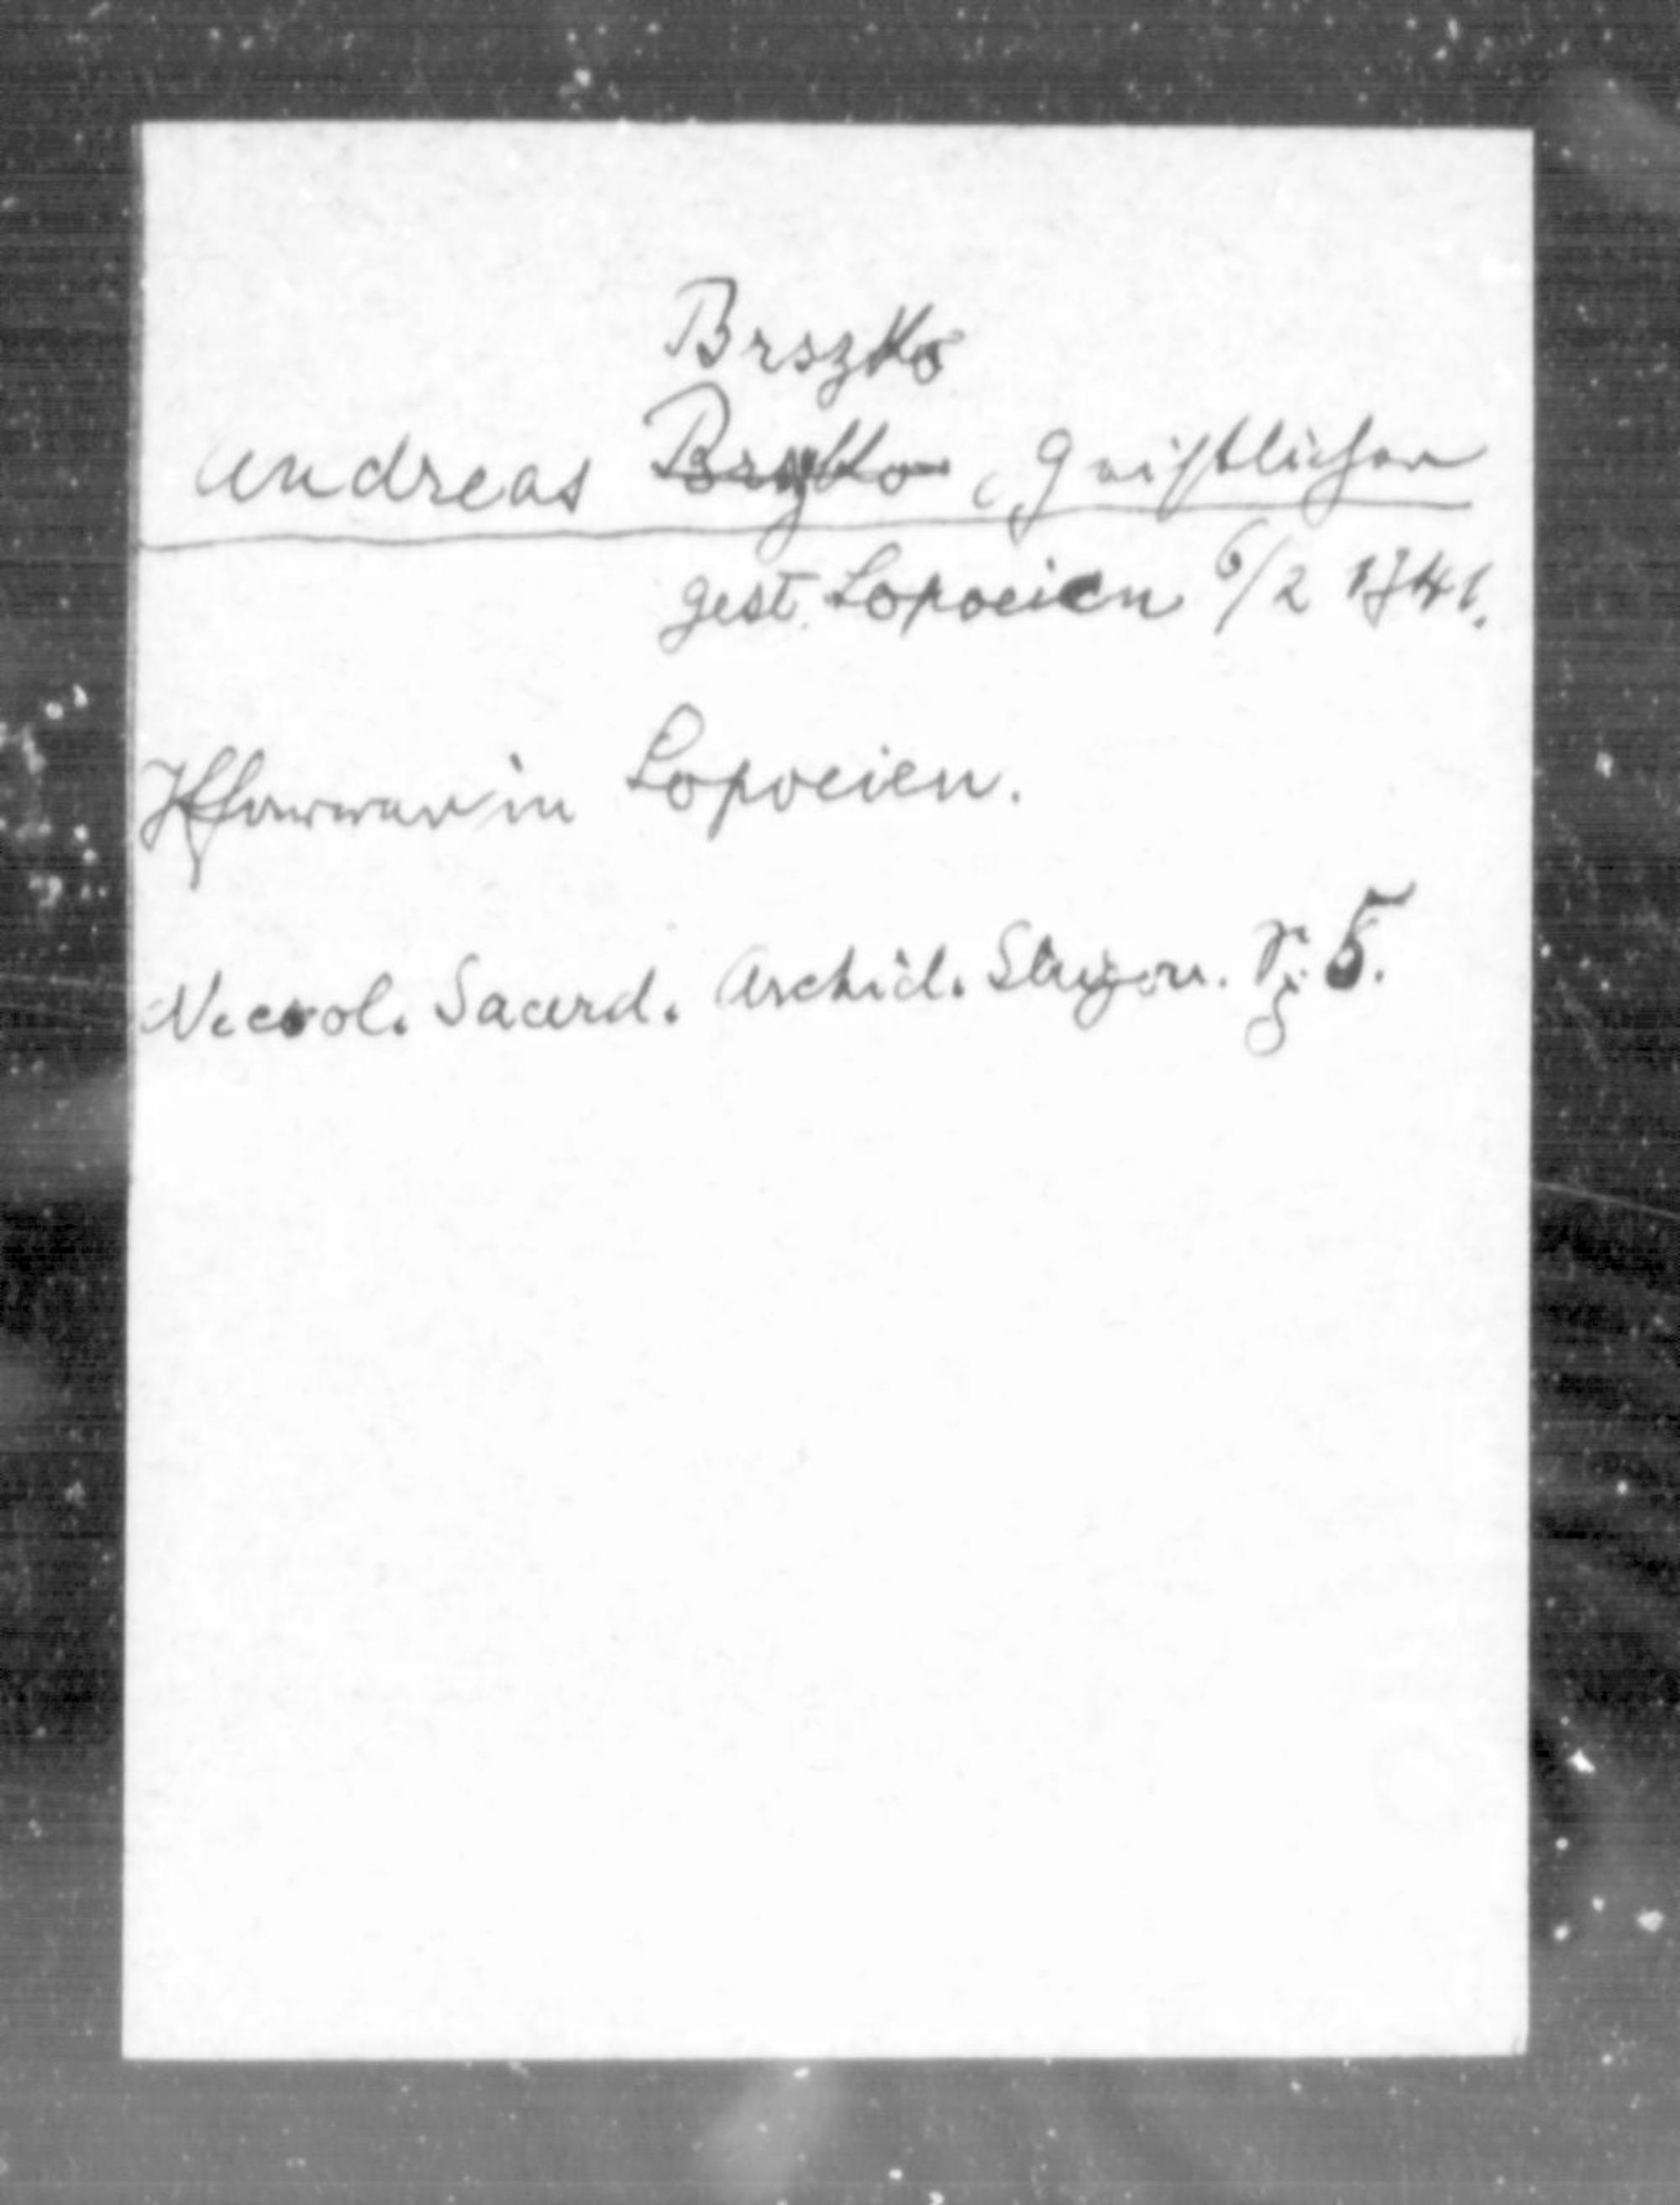 Brszko
Andreas Brzyko, Geistlicher
gest. Lopocien 6/2 1741.
Pfarrer in Lopocien.
Necrol. Sacerd. Archid. p. 5.